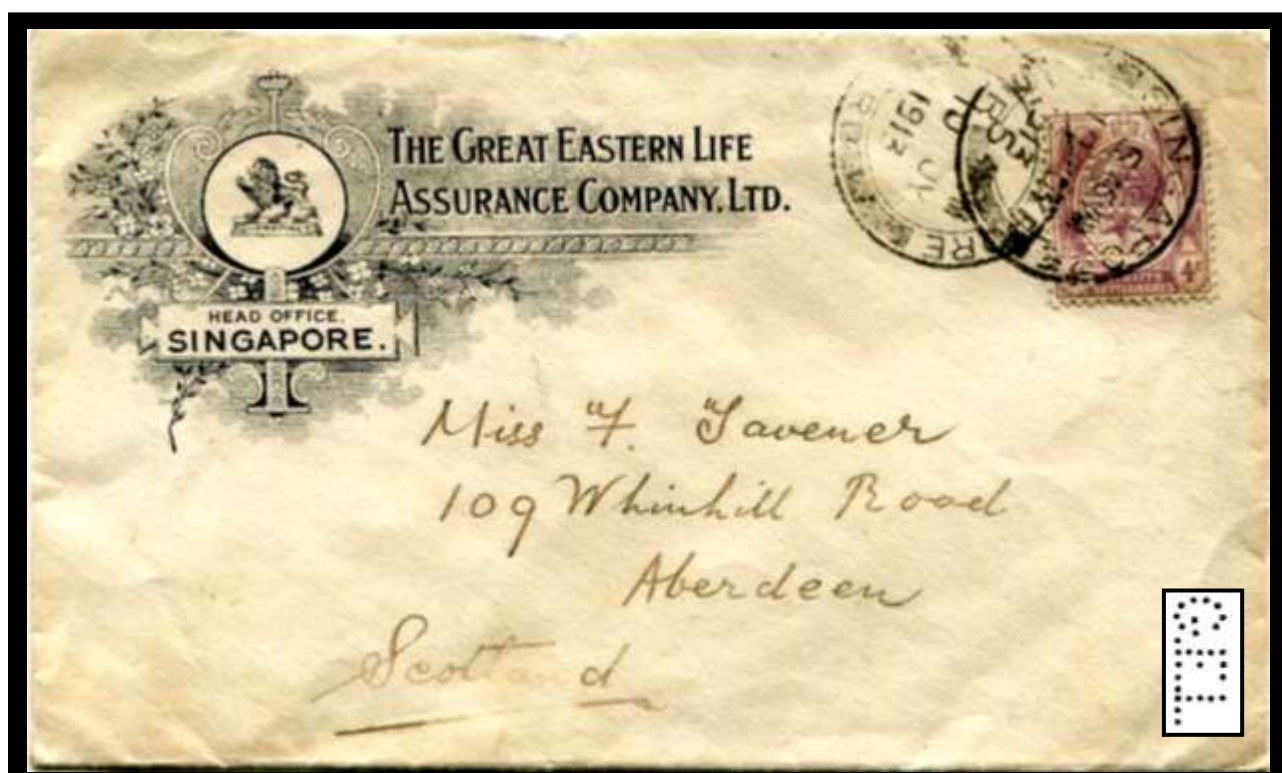 THE GREAT EASTERN LIFE
ASSURANCE COMPANY, LTD.
HEAD OFFICE.
SINGAPORE.
SINGAPORE
1913
4c
Miss F. Tavener
109 Whinhill Road
Aberdeen
Scotland
GEL